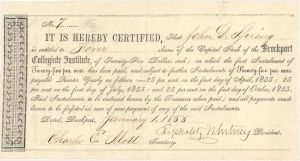 No. 7
IT IS HEREBY CERTIFIED, That John D. Spring
is entitled to Four shares of the Capital Stock of the Brockport
Collegiate Institute, of Twenty-Five Dollars each; on which the first Instalment of
Twenty-five per cent. has been paid, and subject to further Instalments of Twenty-five per cent.
payable thereon Yearly as follows:—25 per cent on the first day of April, 1855; 25 per
cent on the first day of July, 1855; and 25 per cent on the first day of October, 1855.
Said Instalments to be endorsed hereon by the Treasurer when paid; and all payments made
hereon to be forfeited in case of non-payment of any of the said Instalments.
Dated, Brockport, January 1 1855
President.
Charles E. Mott
Secretary.